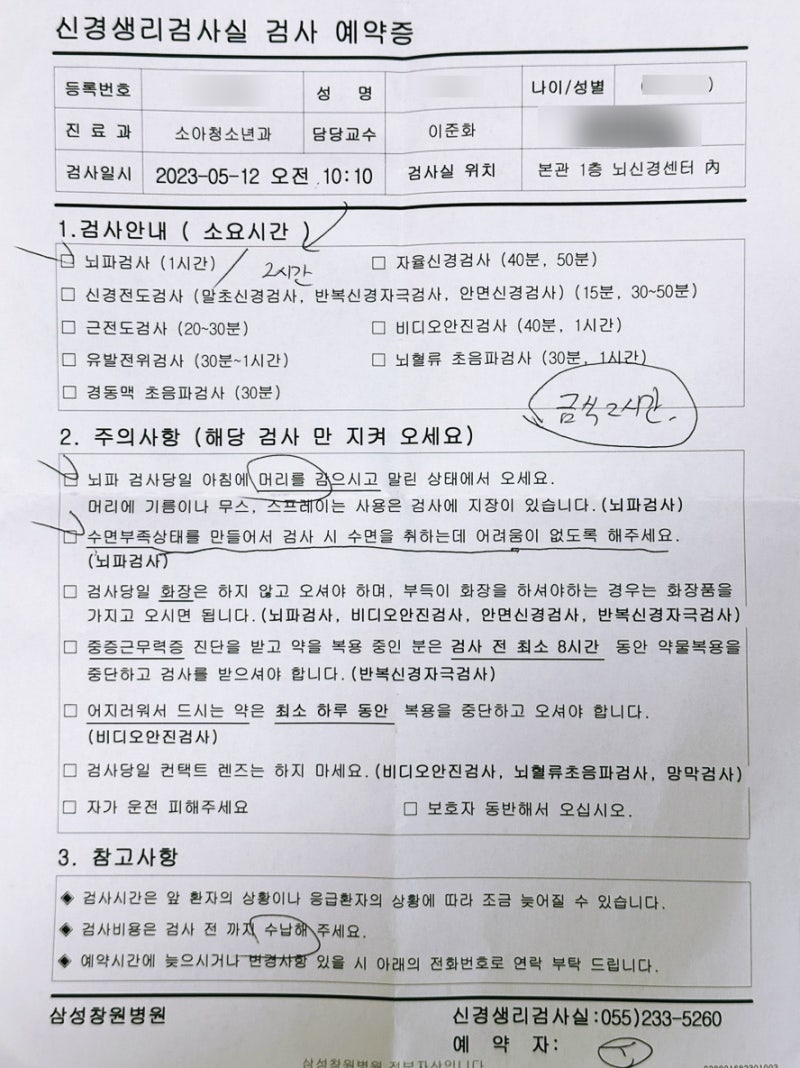 신경생리검사실 검사 예약증
등록번호 성 명 나이/성별 ( )
진 료 과 소아청소년과 담당교수 이준화
검사일시 2023-05-12 오전 10:10 검사실 위치 본관 1층 뇌신경센터 內
1.검사안내 ( 소요시간 )
□ 뇌파검사 (1시간) 2시간 □ 자율신경검사 (40분, 50분)
□ 신경전도검사 (말초신경검사, 반복신경자극검사, 안면신경검사) (15분, 30~50분)
□ 근전도검사 (20~30분) □ 비디오안진검사 (40분, 1시간)
□ 유발전위검사 (30분~1시간) □ 뇌혈류 초음파검사 (30분, 1시간)
□ 경동맥 초음파검사 (30분)
금식 2시간.
2. 주의사항 (해당 검사 만 지켜 오세요)
□ 뇌파 검사당일 아침에 머리를 감으시고 말린 상태에서 오세요.
머리에 기름이나 무스, 스프레이는 사용은 검사에 지장이 있습니다.(뇌파검사)
□ 수면부족상태를 만들어서 검사 시 수면을 취하는데 어려움이 없도록 해주세요.
(뇌파검사)
□ 검사당일 화장은 하지 않고 오셔야 하며, 부득이 화장을 하셔야하는 경우는 화장품을
가지고 오시면 됩니다.(뇌파검사, 비디오안진검사, 안면신경검사, 반복신경자극검사)
□ 중증근무력증 진단을 받고 약을 복용 중인 분은 검사 전 최소 8시간 동안 약물복용을
중단하고 검사를 받으셔야 합니다.(반복신경자극검사)
□ 어지러워서 드시는 약은 최소 하루 동안 복용을 중단하고 오셔야 합니다.
(비디오안진검사)
□ 검사당일 컨택트 렌즈는 하지 마세요.(비디오안진검사, 뇌혈류초음파검사, 망막검사)
□ 자가 운전 피해주세요 □ 보호자 동반해서 오십시오.
3. 참고사항
◈ 검사시간은 앞 환자의 상황이나 응급환자의 상황에 따라 조금 늦어질 수 있습니다.
◈ 검사비용은 검사 전 까지 수납해 주세요.
◈ 예약시간에 늦으시거나 변경사항 있을 시 아래의 전화번호로 연락 부탁 드립니다.
삼성창원병원 신경생리검사실:055)233-5260
예 약 자:
삼성창원병원 정보자산입니다